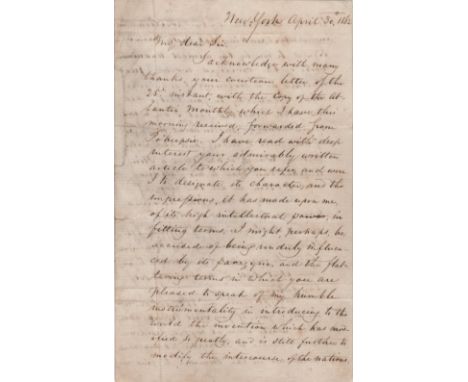 New York April 30th 1862
My dear Sir,
I acknowledge with many
thanks, your courteous letter of the
28th instant, with the copy of the At-
lantic Monthly, which I have this
morning received, forwarded from
Po'keepsie. I have read with deep
interest your admirably written
article to which you refer, and were
I to designate its character, and the
impressions, it has made upon me,
of its high intellectual power, in
fitting terms, I might, perhaps, be
accused of being unduly influen-
ced by its panegyric, and the flat-
tering terms in which you are
pleased to speak of my humble
instrumentality in introducing to the
world the invention which has mod-
ified so greatly, and is still further to
modify the intercourse, of the nations